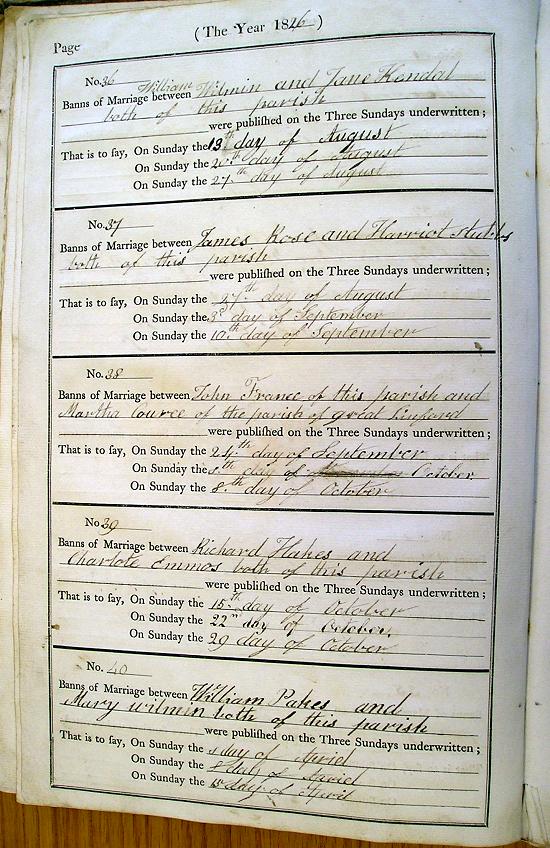 (The Year 1826)
Page
No. 36
Banns of Marriage between William Wilmin and Jane Kendal
both of this parish
were published on the Three Sundays underwritten;
That is to say, On Sunday the 13th day of August
On Sunday the 20th day of August
On Sunday the 27th day of August
No. 37
Banns of Marriage between James Rose and Harriot Stubbs
both of this parish
were published on the Three Sundays underwritten;
That is to say, On Sunday the 27th day of August
On Sunday the 3d day of September
On Sunday the 10th day of September
No. 38
Banns of Marriage between John France of this parish and
Martha Cource of the parish of great Linford
were published on the Three Sundays underwritten;
That is to say, On Sunday the 24th day of September
On Sunday the th day of October
On Sunday the 8th day of October
No. 39
Banns of Marriage between Richard Hakes and
Charlote Emmos both of this parish
were published on the Three Sundays underwritten;
That is to say, On Sunday the 15th day of October
On Sunday the 22nd day of October
On Sunday the 29 day of October
No. 40
Banns of Marriage between William Pakes and
Mary wilmin both of this parish
were published on the Three Sundays underwritten;
That is to say, On Sunday the 1 day of Apriel
On Sunday the 8 day of Apriel
On Sunday the 15 day of Apriel